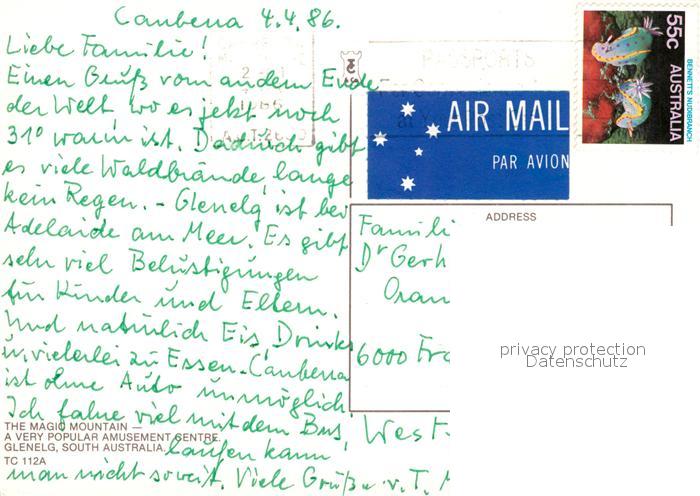 Canberra 4.4.86.
Liebe Familie!
Einen Gruß vom andern Ende
der Welt, wo es jetzt noch
31° warm ist. Dadurch gibt
es viele Waldbrände, lange
kein Regen. - Glenelg ist bei
Adelaide am Meer. Es gibt
sehr viel Belustigungen
für Kinder und Eltern.
Und natürlich Eis, Drinks
u. vielerlei zu Essen. Canberra
ist ohne Auto unmöglich.
Ich fahre viel mit dem Bus,
laufen kann
man nicht soweit. Viele Grüße v. T.
THE MAGIC MOUNTAIN —
A VERY POPULAR AMUSEMENT CENTRE.
GLENELG, SOUTH AUSTRALIA.
TC 112A
PASSPORTS
55c AUSTRALIA
BENNETT'S NUDIBRANCH
AIR MAIL
PAR AVION
ADDRESS
Famili
Dr Gerh
Oran
6000 Fra
West-
privacy protection
Datenschutz